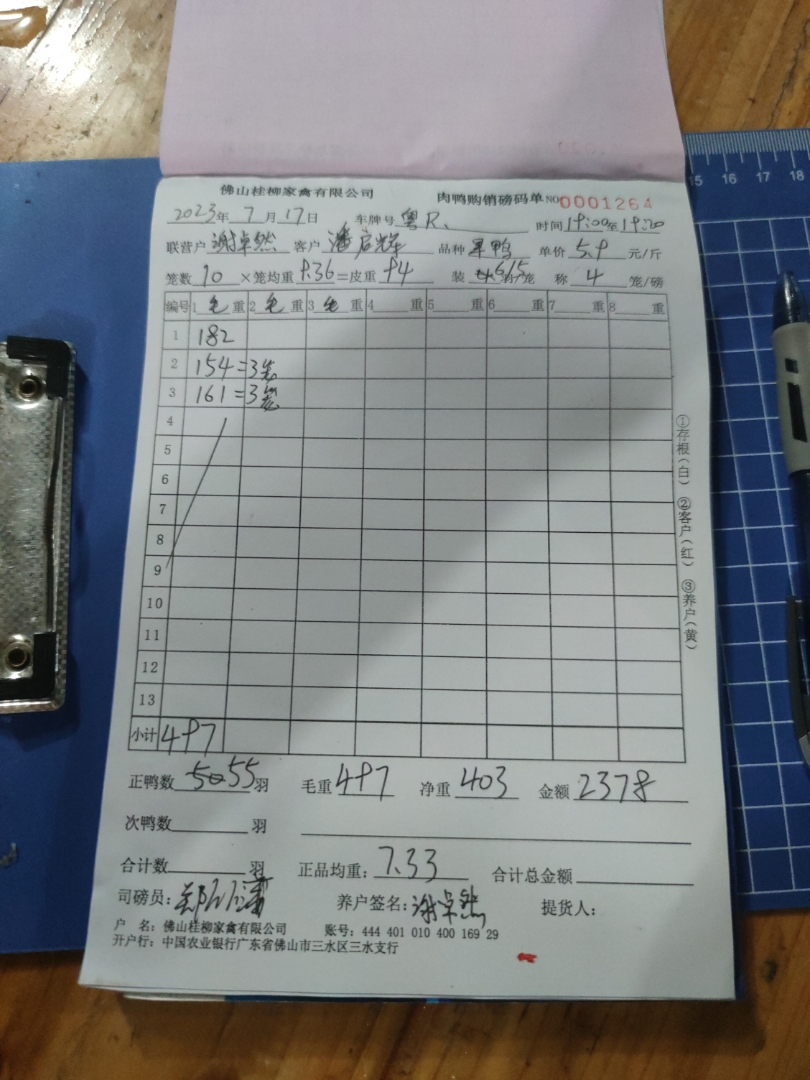 佛山桂柳家禽有限公司 肉鸭购销磅码单 NO 0001264
2023年 7月 17日 车牌号 粤R. 时间 19:00至19:20
联营户 谢卓然 客户 潘启辉 品种 单价 5.9 元/斤
笼数 10 ×笼均重 9.36 =皮重 94 装 笼 称 4 笼/磅
编号 1 毛 重 2 毛 重 3 毛 重 4 重 5 重 6 重 7 重 8 重
1 182
2 154=3笼
3 161=3笼
4
5
6
7
8
9
10
11
12
13
小计 497
正鸭数 55 羽 毛重 497 净重 403 金额 2378
次鸭数 羽
合计数 羽 正品均重: 7.33 合计总金额
司磅员: 养户签名: 谢卓然 提货人:
户 名: 佛山桂柳家禽有限公司 账号: 444 401 010 400 169 29
开户行: 中国农业银行广东省佛山市三水区三水支行
①存根(白) ②客户(红) ③养户(黄)
15 16 17 18